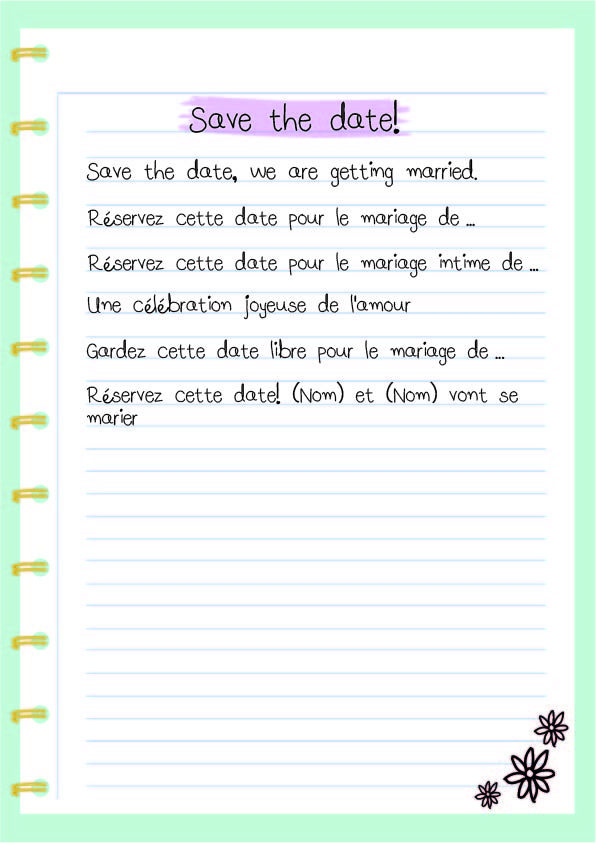 Save the date!
Save the date, we are getting married.
Réservez cette date pour le mariage de ...
Réservez cette date pour le mariage intime de ...
Une célébration joyeuse de l'amour
Gardez cette date libre pour le mariage de ...
Réservez cette date! (Nom) et (Nom) vont se
marier